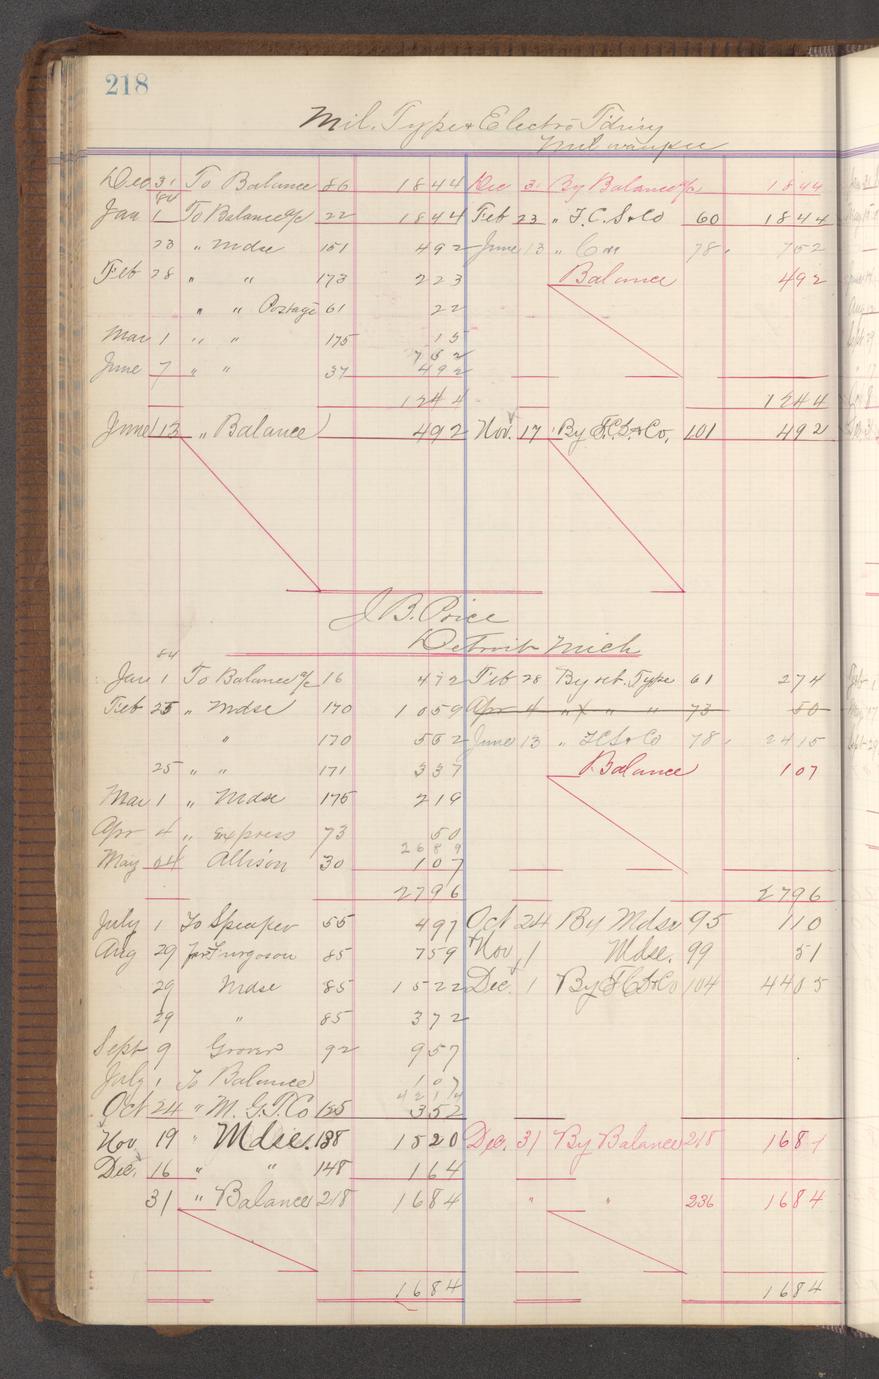 218
Mil. Type & Electro
Milwaukee
Dec 31 To Balance 86 1844 Dec 31 By Balance a/c 1844
84
Jan 1 To Balance a/c 22 1844 Feb 23 " F.C.S. & Co 60 1844
23 " Mdse 151 492 June 13 " 78 752
Feb 28 " " 173 223 Balance 492
" " Postage 61 22
Mar 1 " " 175 15
752
June 7 " " 37 492
1244 1244
June 13 " Balance 492 Nov. 17 By F.C.S. & Co. 101 492
J. B. Price
Detroit Mich
84
Jan 1 To Balance a/c 16 472 Feb 28 By ret. Type 61 274
Feb 25 " Mdse 170 1059 Apr 4 " " " 73 50
" 170 552 June 13 " F.C.S. & Co 78 2415
25 " " 171 337 Balance 107
Mar 1 " Mdse 175 219
Apr 4 " Express 73 50
2689
May 04 Allison 30 107
2796 2796
July 1 To Speaker 55 497 Oct 24 By Mdse 95 110
Aug 29 Jas Furgoson 85 759 Nov 1 Mdse. 99 51
29 Mdse 85 1522 Dec. 1 By F.C.S. & Co 104 4405
29 " 85 372
Sept 9 Grover 92 957
July 1 To Balance 107
4214
Oct 24 " M. G. T. Co 125 352
Nov. 19 " Mdse. 138 1520 Dec. 31 By Balance 218 1684
Dec. 16 " " 148 164
31 " Balance 218 1684 " " 236 1684
1684 1684